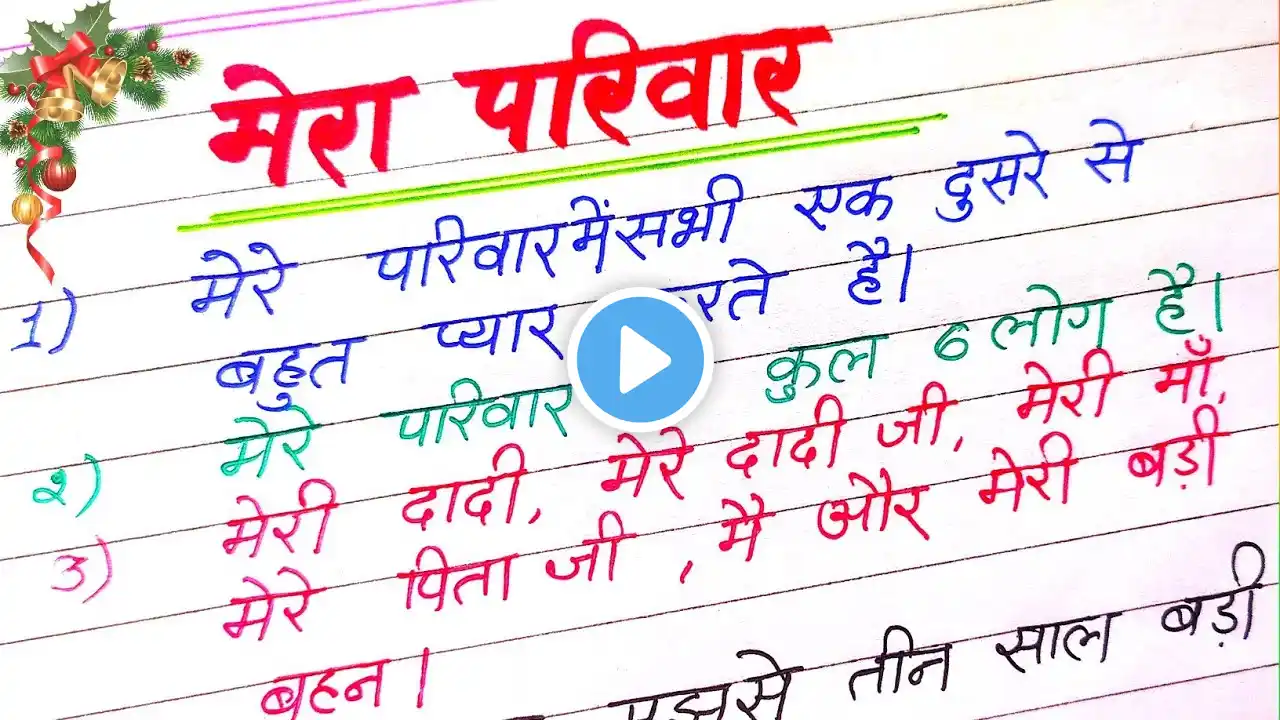 मेरा परिवार
1) मेरे परिवारमेंसभी एक दुसरे से
बहुत प्यार है।
२) मेरे परिवार कुल 6 लोग है।
3) मेरी दादी, मेरे दादी जी, मेरी माँ,
मेरे पिता जी , मै और मेरी बड़ी
बहन।
तीन साल बड़ी